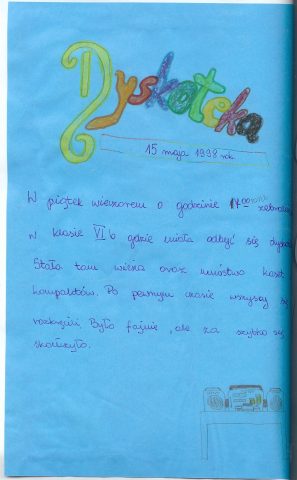 Dyskoteka
15 maja 1998 rok
W piątek wieczorem o godzinie 17:00
w klasie VI b gdzie miała odbyć się
Stała tam wieża oraz mnóstwo kaset
kompaktów. Po pewnym czasie wszyscy się
rozkręcili. Było fajnie, ale za szybko się
skończyło.